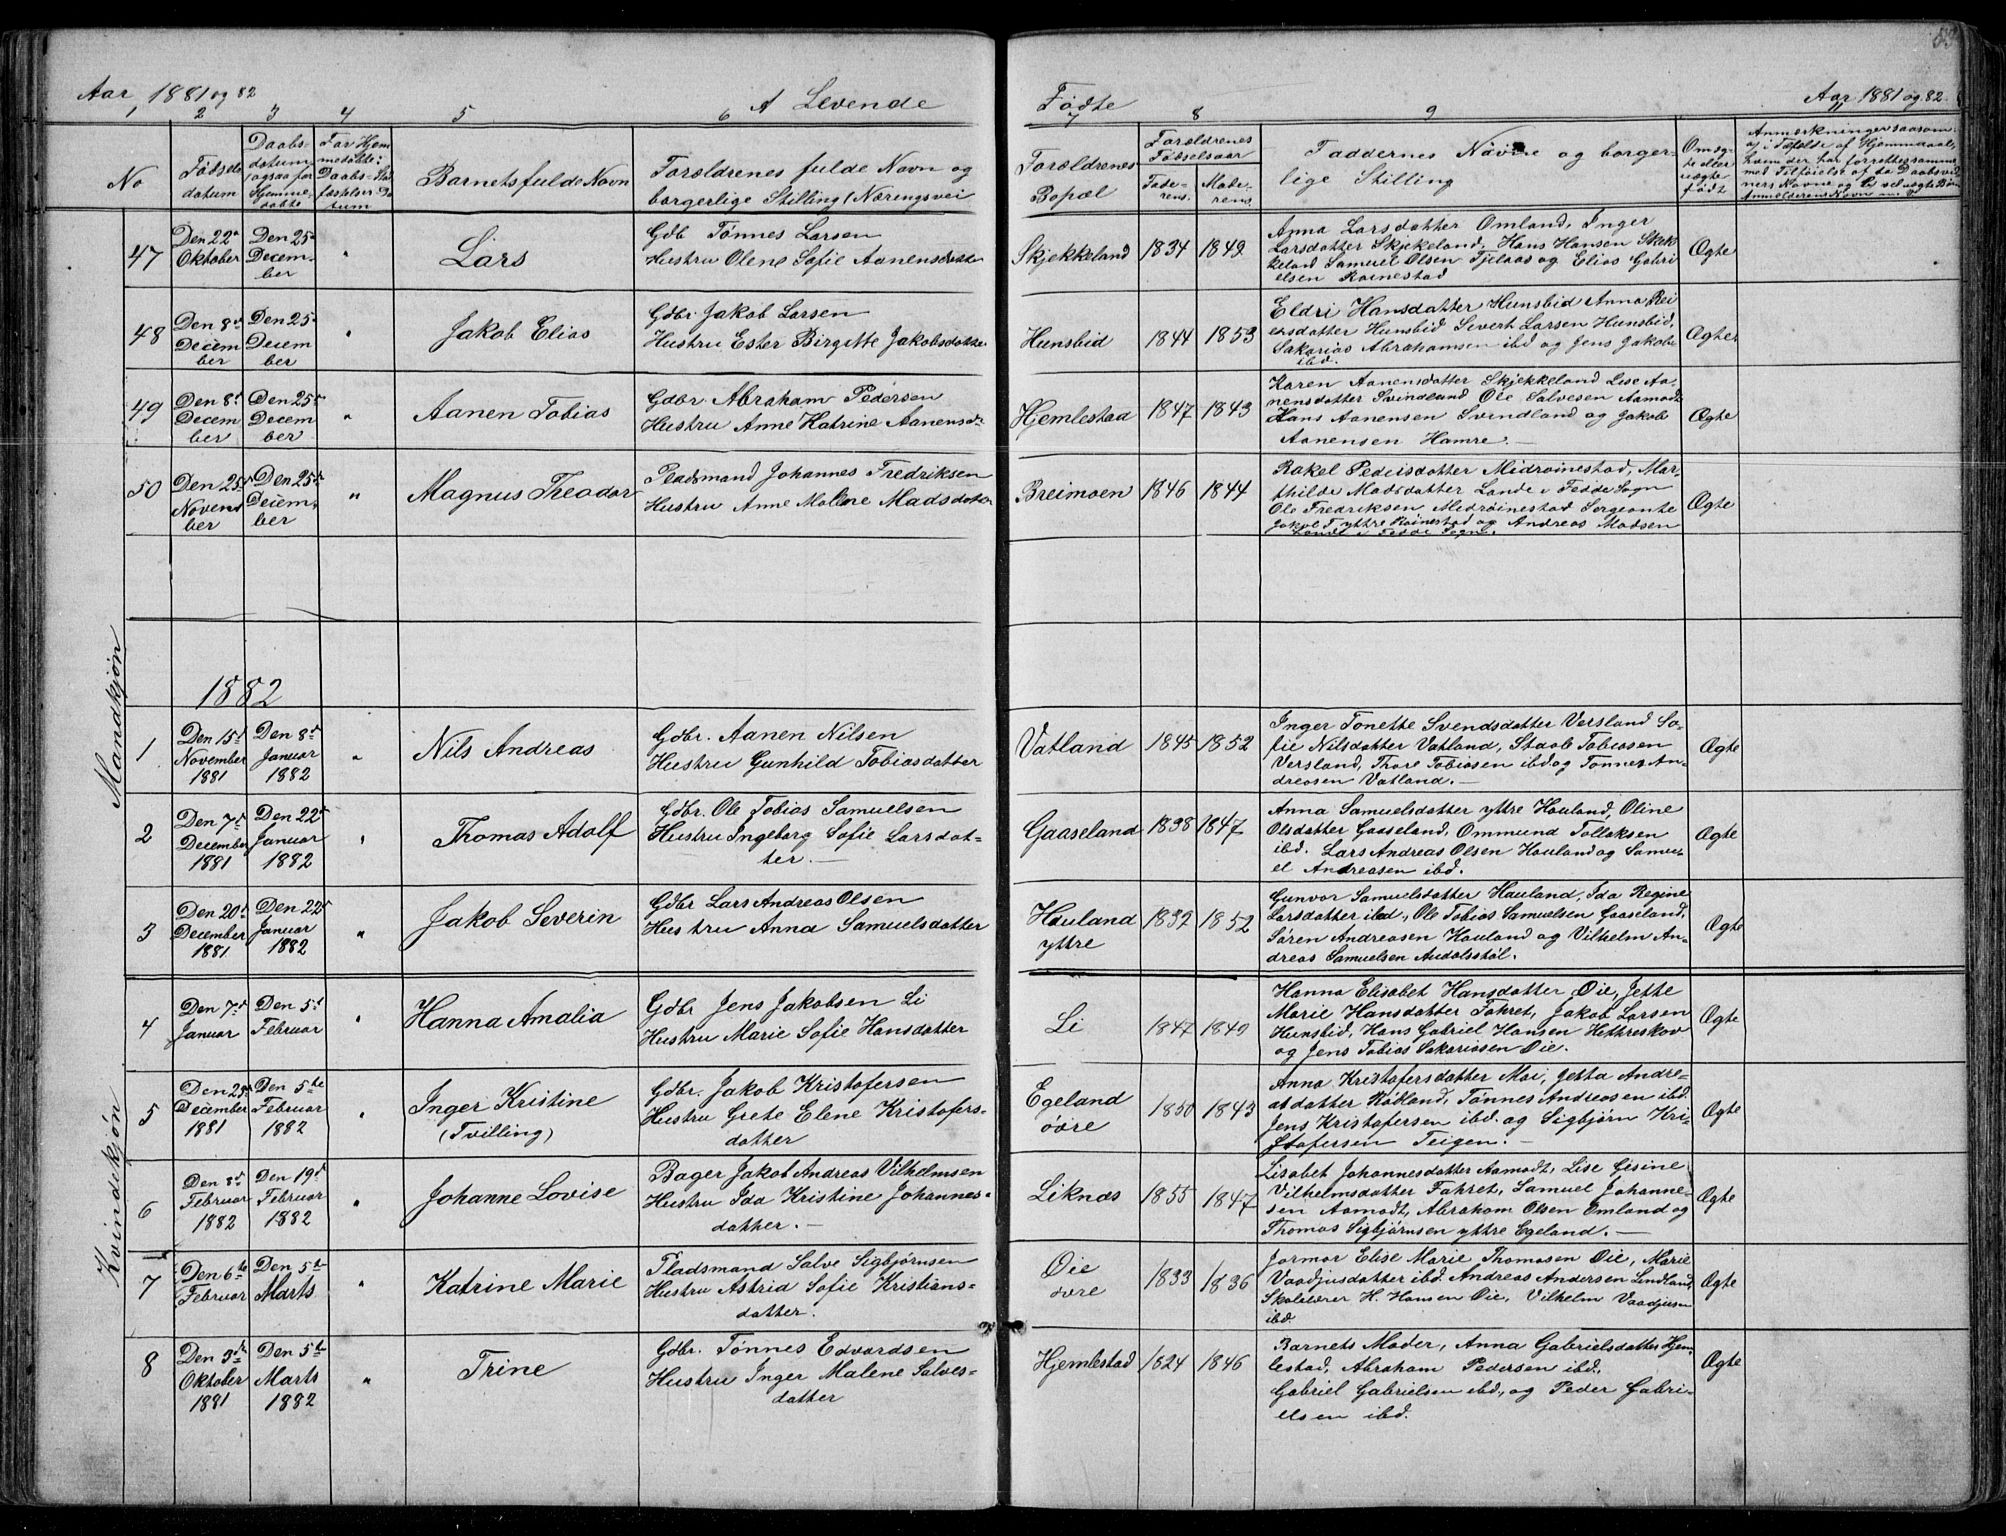 Aar 1881 og 82
A Levende
Fødte
Aar 1881 og 82.
1 2 3 4 5 6 7 8 9
No
Fødsels
datum
Daabs-
datum
(ogsaa for
Hjemme-
døbte
For Hjem
medøbte:
Daabs-Stad
fæstelses Da
tum
Barnets fulde Navn
Forældrenes fulde Navn og
borgerlige Stilling (Næringsvei
Forældrenes
Bopæl
Forældrenes
Fødselsaar
Fade-
rens.
Mode-
rens.
Faddernes Navne og borger-
lige Stilling
Om æg
te eller
uægte
født
Mandkjøn
47
Den 22de
Oktober
Den 25de
Decem-
ber
"
Lars
Gdb Tønnes Larsen
Hustru Olene Sofie Aanensdatter
Skjekkeland
1834
1849
Anna Larsdatter Omland, Inger
Larsdatter Skjekeland, Hans Hansen Skek-
keland Samuel Olsen Tjelaas og Elias Gabri
elsen Røinestad
Ægte
48
Den 8de
Decem
ber
Den 25
Decem
ber
"
Jakob Elias
Gdbr. Jakob Larsen
Hustru Ester Birgitte Jakobsdatter
Hunsbid
1844
1853
Eldri Hansdatter Hunsbid Anna Rei
ersdatter Hunsbid Severt Larsen Hunsbid,
Sakarias Abrahamsen ibd og Jens Jakobs
ibd.
Ægte
49
Den 8de
Decem
ber
Den 25de
Decem
ber
"
Aanen Tobias
Gdbr. Abraham Pedersen
Hustru Anne Katrine Aanensd
Hjemlestad
1847
1843
Karen Aanensdatter Skjekkeland Lise Aa-
nensdatter Svindland Ole Salvesen Aamodt
Hans Aanensen Svindland og Jakob
Aanensen Hamre. —
Ægte
50
Den 25de
Novem
ber
Den 25de
Decem-
ber
"
Magnus Theodor
Pladsmand Johannes Fredriksen
Hustru Anne Malene Madsdatter
Breimoen
1846
1844
Rakel Pedersdatter Midrøinestad, Mar
thilde Madsdatter Lande i Fedde Sogn
Ole Fredriksen Midrøinestad Sergeante
Jakob T yttre Røinestad og Andreas Madsen
Lande i Fedde Sogn.
Ægte
1882
1
Den 15de
November
1881
Den 8de
Januar
1882
"
Nils Andreas
Gdbr. Aanen Nilsen
Hustru Gunhild Tobiasdatter
Vatland
1845
1852
Inger Tonette Svendsdatter Versland So-
fie Nilsdatter Vatland, Staale Tobiasen
Versland, Thore Tobiasen ibd og Tønnes An-
dreasen Vatland. —
Ægte
2
Den 7de
December
1881
Den 22de
Januar
1882
"
Thomas Adolf
Gdbr. Ole Tobias Samuelsen
Hustru Ingeborg Sofie Larsdat-
ter. —
Gaaseland
1838
1847
Anna Samuelsdatter yttre Hauland, Oline
Olsdatter Gaaseland, Ommund Tollaksen
ibd. Lars Andreas Olsen Hauland og Samu-
el Andreasen ibd.
Ægte
3
Den 20de
December
1881
Den 22de
Januar
1882
"
Jakob Severin
Gdbr Lars Andreas Olsen
Hustru Anna Samuelsdatter
Hauland
yttre
1832
1852
Gunvor Samuelsdatter Hauland, Ida Regine
Larsdatter ibd., Ole Tobias Samuelsen Gaaseland,
Søren Andreasen Hauland og Vilhelm An-
dreas Samuelsen Audalsstøl.
Ægte
Kvindekjøn
4
Den 7de
Januar
Den 5te
Februar
"
Hanna Amalia
Gdbr Jens Jakobsen Li
Hustru Marie Sofie Hansdatter
Li
1847
1849
Hanna Elisabet Hansdatter Øie, Jette
Marie Hansdatter Fahret, Jakob Larsen
Hunsbid, Hans Gabriel Hansen Hettreskov
og Jens Tobias Sakariasen Øie.
Ægte
5
Den 25de
December
1881
Den 5te
Februar
1882
"
Inger Kristine
(Tvilling)
Gdbr. Jakob Kristofersen
Hustru Grete Elene Kristofers-
datter
Egeland
øvre
1850
1843
Anna Kristofersdatter Moi, Jetta Andre-
asdatter Røiland, Tønnes Andreasen ibd.
Jens Kristofersen ibd. og Sigbjørn Kri-
stofersen Teigen. —
Ægte
6
Den 8de
Februar
1882
Den 19de
Februar
1882
"
Johanne Lovise
Bager Jakob Andreas Vilhelmsen
Hustru Ida Kristine Johannes-
datter. —
Liknæs
1855
1847
Lisabet Johannesdatter Aamodt, Lise Gesine
Vilhelmsdatter Fahret, Samuel Johanne-
sen Aamodt, Abraham Olsen Omland og
Thomas Sigbjørnsen yttre Egeland. —
Ægte
7
Den 6te
Februar
Den 5te
Marts
"
Katrine Marie
Pladsmand Salve Sigbjørnsen
Hustru Astrid Sofie Kristians-
datter.
Øie
øvre
1833
1836
Jormor Elise Marie Thomasen Øie, Marie
Vaadjusdatter ibd. Andreas Andersen Lindland,
Skolelærer H. Hansen Øie, Vilhelm Vaadjusen
ibd.
Ægte
8
Den 3de
Oktober
1881
Den 5te
Marts
1882
"
Trine
Gdbr. Tønnes Edvardsen
Hustru Inger Malene Salves-
datter
Hjemlestad
1824
1846
Barnets Moder, Anna Gabrielsdatter Hjem-
lestad, Abraham Pedersen ibd.
Gabriel Gabrielsen ibd., og Peder Gabri-
elsen ibd.
Ægte